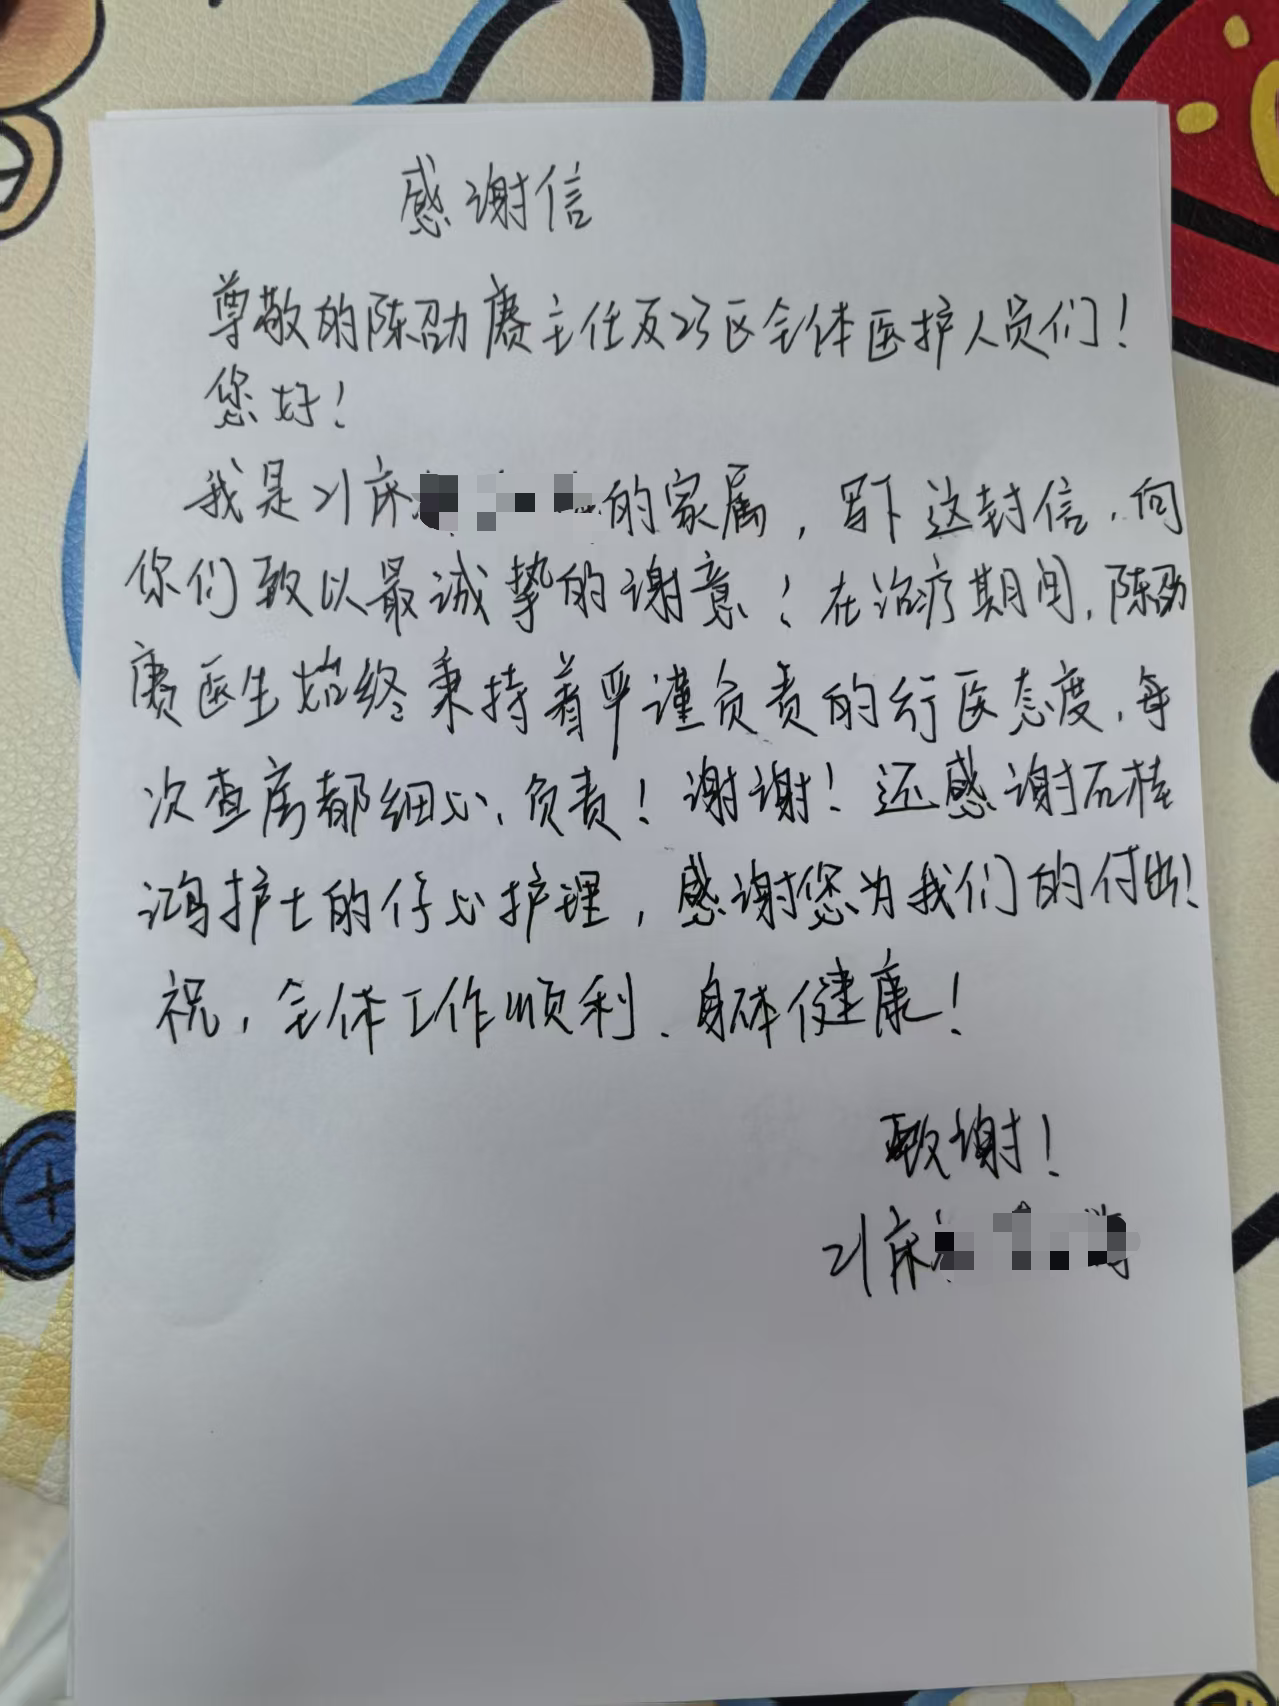 感谢信
尊敬的陈劭赓主任及23区全体医护人员们！
您好！
我是21床的家属，写下这封信，向
你们致以最诚挚的谢意！在治疗期间，陈劭
赓医生始终秉持着严谨负责的行医态度，每
次查房都细心、负责！谢谢！还感谢石桂
鸿护士的仔心护理，感谢您为我们的付出！
祝，全体工作顺利、身体健康！
致谢！
21床